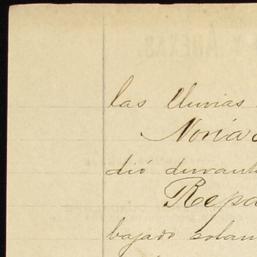 las lluvias
Noria
dió durant
Repa
bajado solam